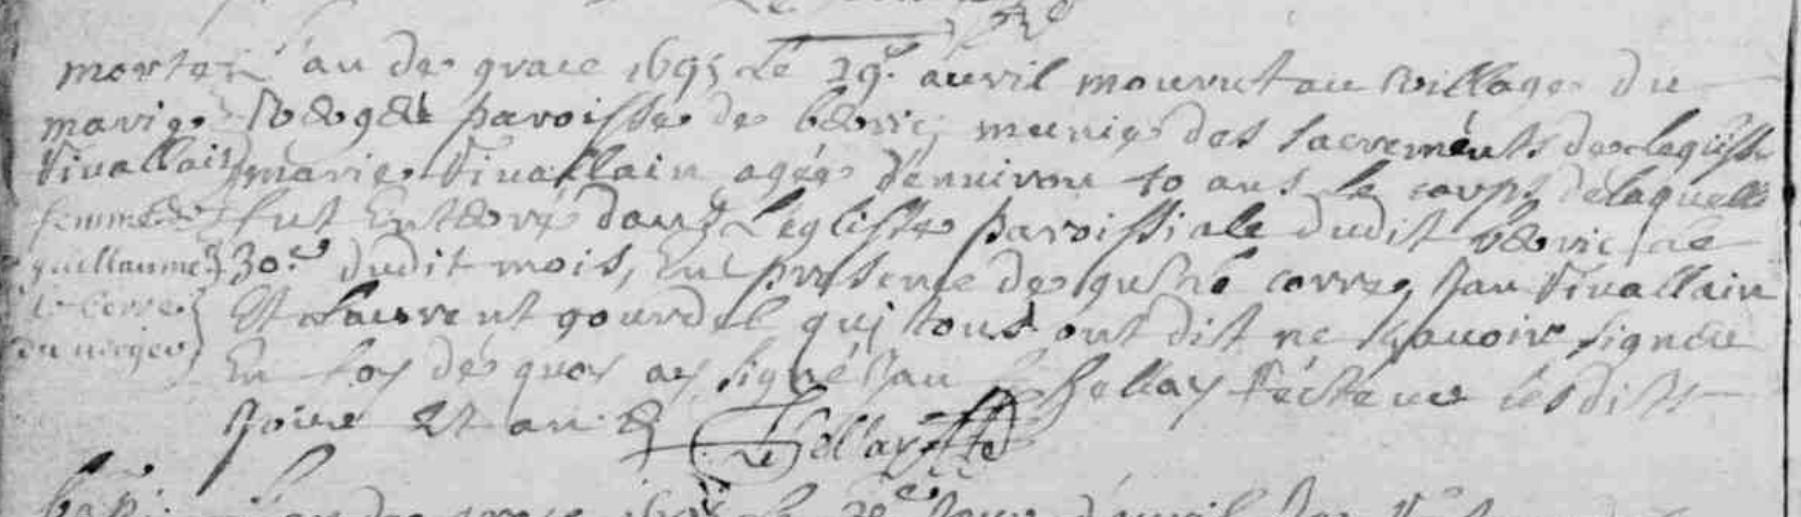 morte
marie
Vinallain
femme de
guillaume
le corre
du verger
L'an de grace 1695 Le 29e auril mourut au village du
Verger paroisse de berric, munie des sacrements de leglisse
marie Vinallain agée d'enuiron 40 ans le corps de laquelle
fut Enterré dans Leglisse paroissiale dudit berric le
30e dudit mois, En presence de corre, Jan Vinallain
Et Laurent gourdel quj tous ont dit ne sçauoir signer
En foy de quoy ay signé Jan Le Gellay Recteur lesdits
Jour Et an